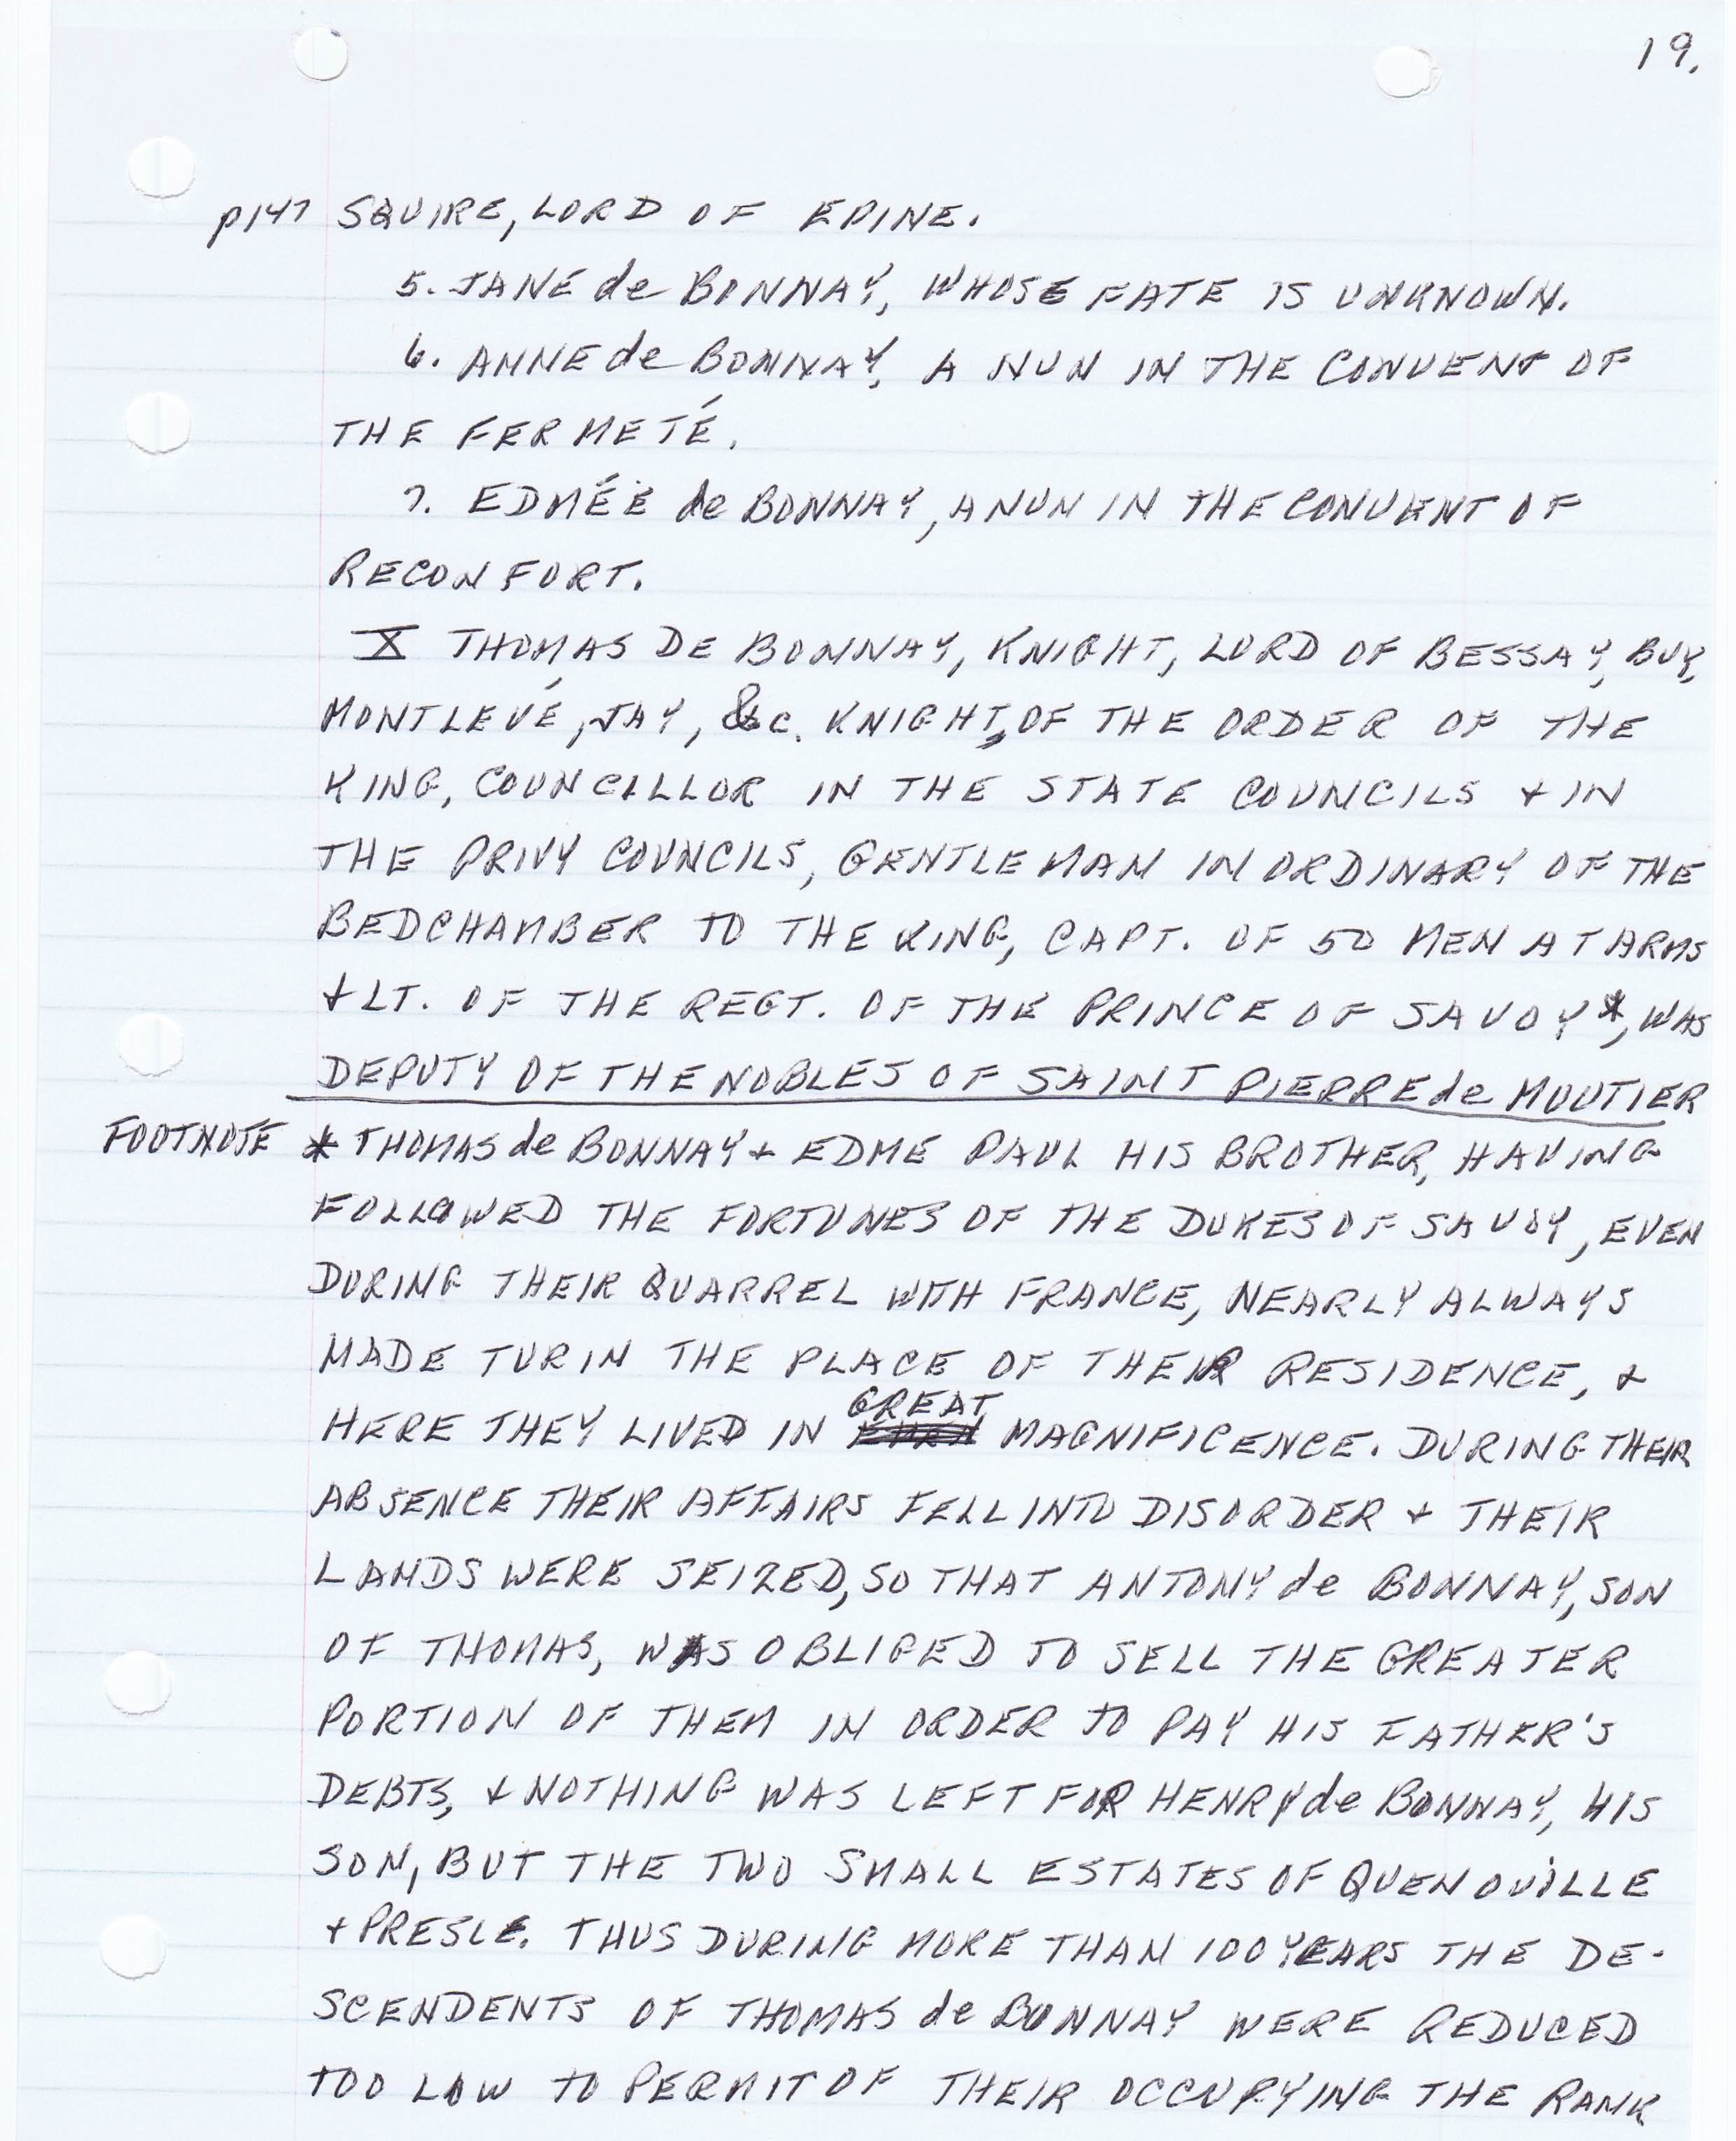 19.
p147 SQUIRE, LORD OF EPINE.
5. JANE de BONNAY, WHOSE FATE IS UNKNOWN.
6. ANNE de BONNAY, A NUN IN THE CONVENT OF
THE FERMETÉ.
7. EDMÉE de BONNAY, A NUN IN THE CONVENT OF
RECONFORT.
X THOMAS DE BONNAY, KNIGHT, LORD OF BESSAY, BUY,
MONTLEVÉ, JAY, &c. KNIGHT, OF THE ORDER OF THE
KING, COUNCILLOR IN THE STATE COUNCILS + IN
THE PRIVY COUNCILS, GENTLEMAN IN ORDINARY OF THE
BEDCHAMBER TO THE KING, CAPT. OF 50 MEN AT ARMS
+ LT. OF THE REGT. OF THE PRINCE OF SAVOY*, WAS
DEPUTY OF THE NOBLES OF SAINT PIERRE de MOUTIER
FOOTNOTE * THOMAS de BONNAY + EDME PAUL HIS BROTHER, HAVING
FOLLOWED THE FORTUNES OF THE DUKES OF SAVOY, EVEN
DURING THEIR QUARREL WITH FRANCE, NEARLY ALWAYS
MADE TURIN THE PLACE OF THEIR RESIDENCE, +
HERE THEY LIVED IN GREAT MAGNIFICENCE. DURING THEIR
ABSENCE THEIR AFFAIRS FELL INTO DISORDER + THEIR
LANDS WERE SEIZED, SO THAT ANTONY de BONNAY, SON
OF THOMAS, WAS OBLIGED TO SELL THE GREATER
PORTION OF THEM IN ORDER TO PAY HIS FATHER'S
DEBTS, + NOTHING WAS LEFT FOR HENRY de BONNAY, HIS
SON, BUT THE TWO SMALL ESTATES OF QUENOUILLE
+ PRESLE. THUS DURING MORE THAN 100 YEARS THE DE-
SCENDENTS OF THOMAS de BONNAY WERE REDUCED
TOO LOW TO PERMIT OF THEIR OCCUPYING THE RANK